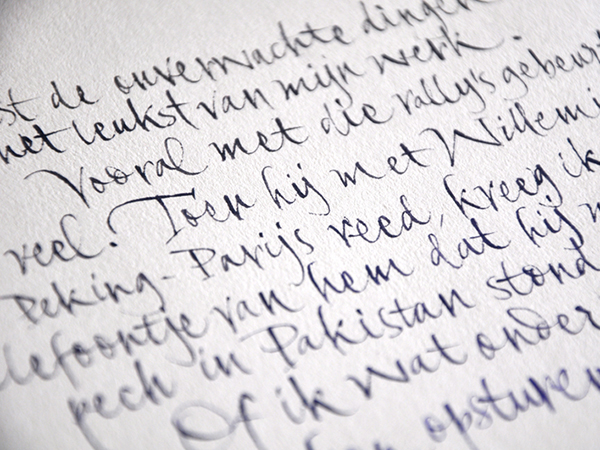 st de onverwachte dingen
het leukst van mijn werk.
Vooral met die rally's gebeurt
veel. Toen hij met Willem i
Peking-Parijs reed, kreeg ik
lefoontje van hem dat hij m
pech in Pakistan stond
Of ik wat onder
opsturen